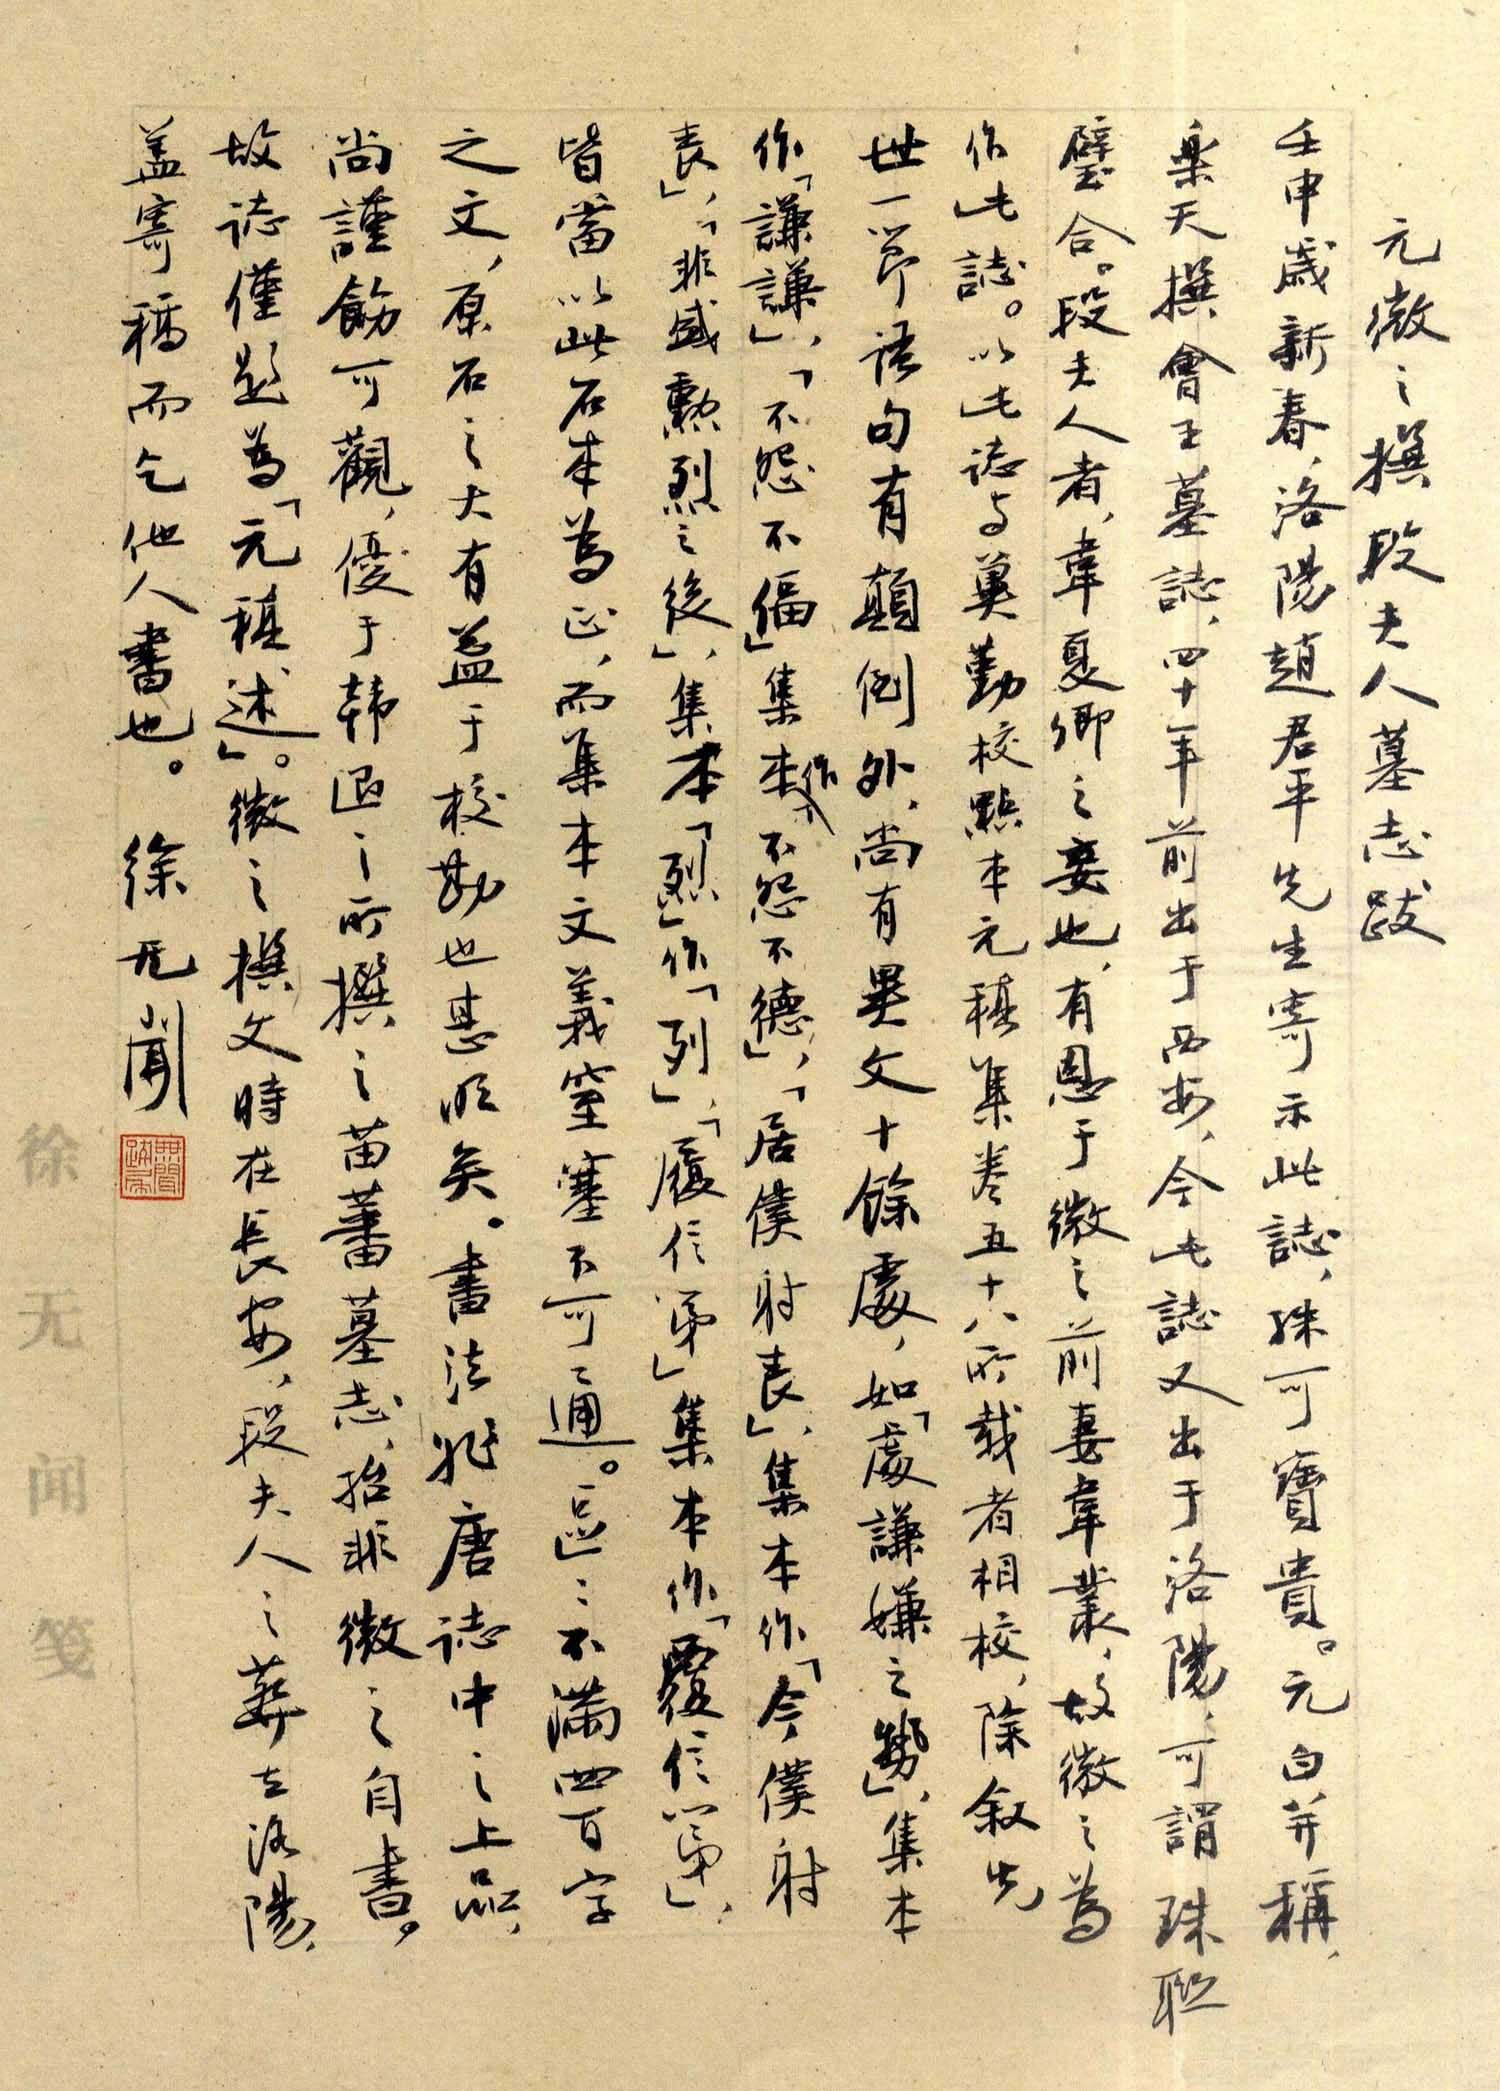 元微之撰段夫人墓志跋
壬申歲新春，洛陽趙君平先生寄示此誌，殊可寶貴。元白并稱，
樂天撰會王墓誌，四十年前出于西安，今此誌又出于洛陽，可謂珠联
璧合。段夫人者，韋夏卿之妾也，有恩于微之前妻韋叢，故微之為
作此誌。以此誌与冀勤校點本元稹集卷五十八所载者相校，除叙先
世一節語句有顛倒外，尚有異文十餘處，如「處謙嫌之勢」，集本
作「謙謙」，「不怨不偪」集本作「不怨不德」，「居僕射表」，集本作「今僕射
表」，「非盛勲烈之後」，集本「烈」作「列」，「履信第」集本作「覆信第」，
皆當以此石本為正，而集本文義窒塞不可通。區區不满四百字
之文，原石之大有益于校勘也甚明矣。書法非唐誌中之上品，
尚謹飭可觀，優于韩退之所撰之苗蕃墓志，殆非微之自書。
故誌僅題為「元稹述」。微之撰文時在長安，段夫人之葬在洛陽，
盖寄稿而乞他人書也。 徐无聞
徐无闻笺